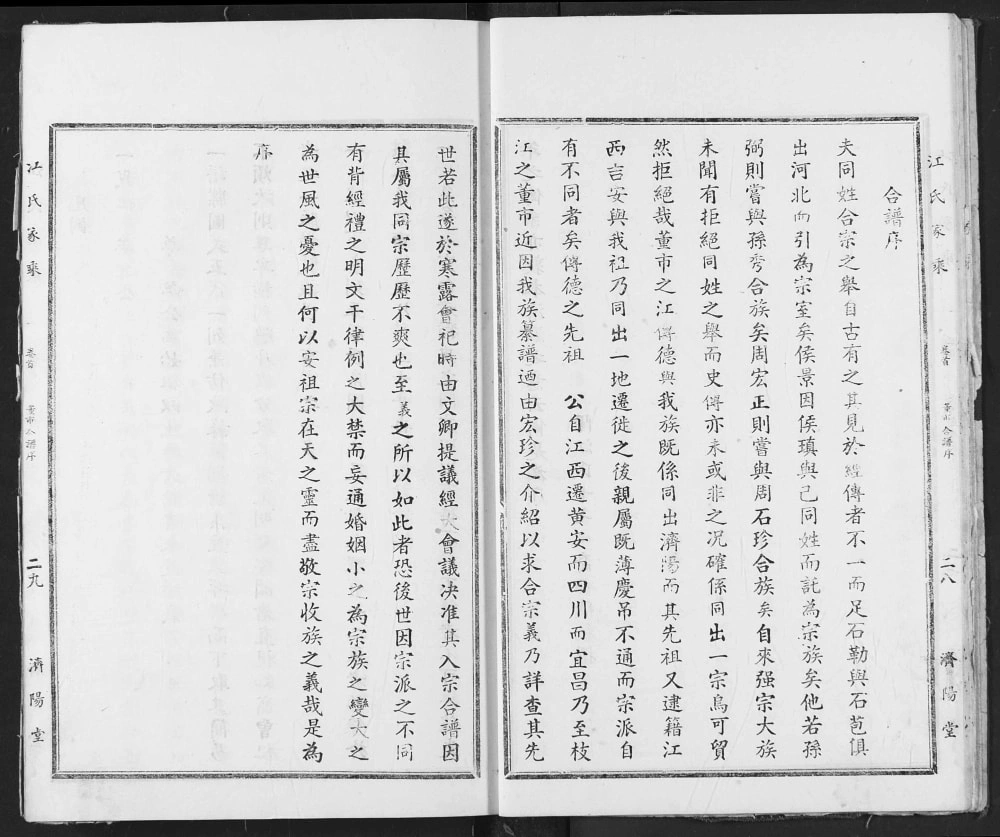 江氏家乘 卷首 董市合譜序 二八 濟陽堂
合譜序
夫同姓合宗之舉自古有之其見於經傳者不一而足石勒與石苞俱
出河北而引為宗室矣侯景因侯瑱與己同姓而託為宗族矣他若孫
弼則嘗與孫秀合族矣周宏正則嘗與周石珍合族矣自來强宗大族
未聞有拒絕同姓之舉而史傳亦未或非之况確係同出一宗烏可貿
然拒絕哉董市之江傳德與我族既係同出濟陽而其先祖又建籍江
西吉安與我祖乃同出一地遷徙之後親屬既薄慶吊不通而宗派自
有不同者矣傳德之先祖 公自江西遷黄安而四川而宜昌乃至枝
江之董市近因我族纂譜迺由宏珍之介紹以求合宗義乃詳查其先
世若此遂於寒露會祀時由文卿提議經大會議决准其入宗合譜因
其屬我同宗歷歷不爽也至義之所以如此者恐後世因宗派之不同
有背經禮之明文干律例之大禁而妄通婚姻小之為宗族之變大之
為世風之憂也且何以安祖宗在天之靈而盡敬宗收族之義哉是為
序
江氏家乘 卷首 董市合譜序 二九 濟陽堂